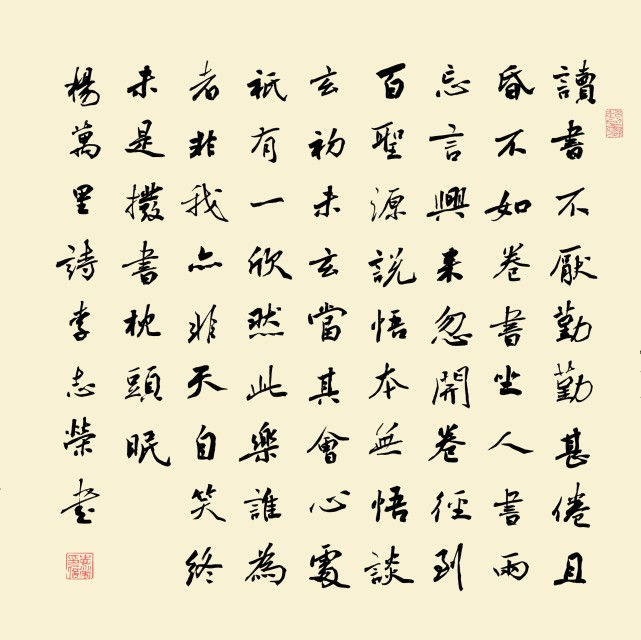 讀書不厭勤勤甚倦且
昏不如卷書坐人書雨
忘言興來忽開卷徑到
百聖源說悟本無悟談
玄初未玄當其會心處
祇有一欣然此樂誰為
者非我亦非天自笑終
未是撥書枕頭眠
楊萬里詩李志榮書